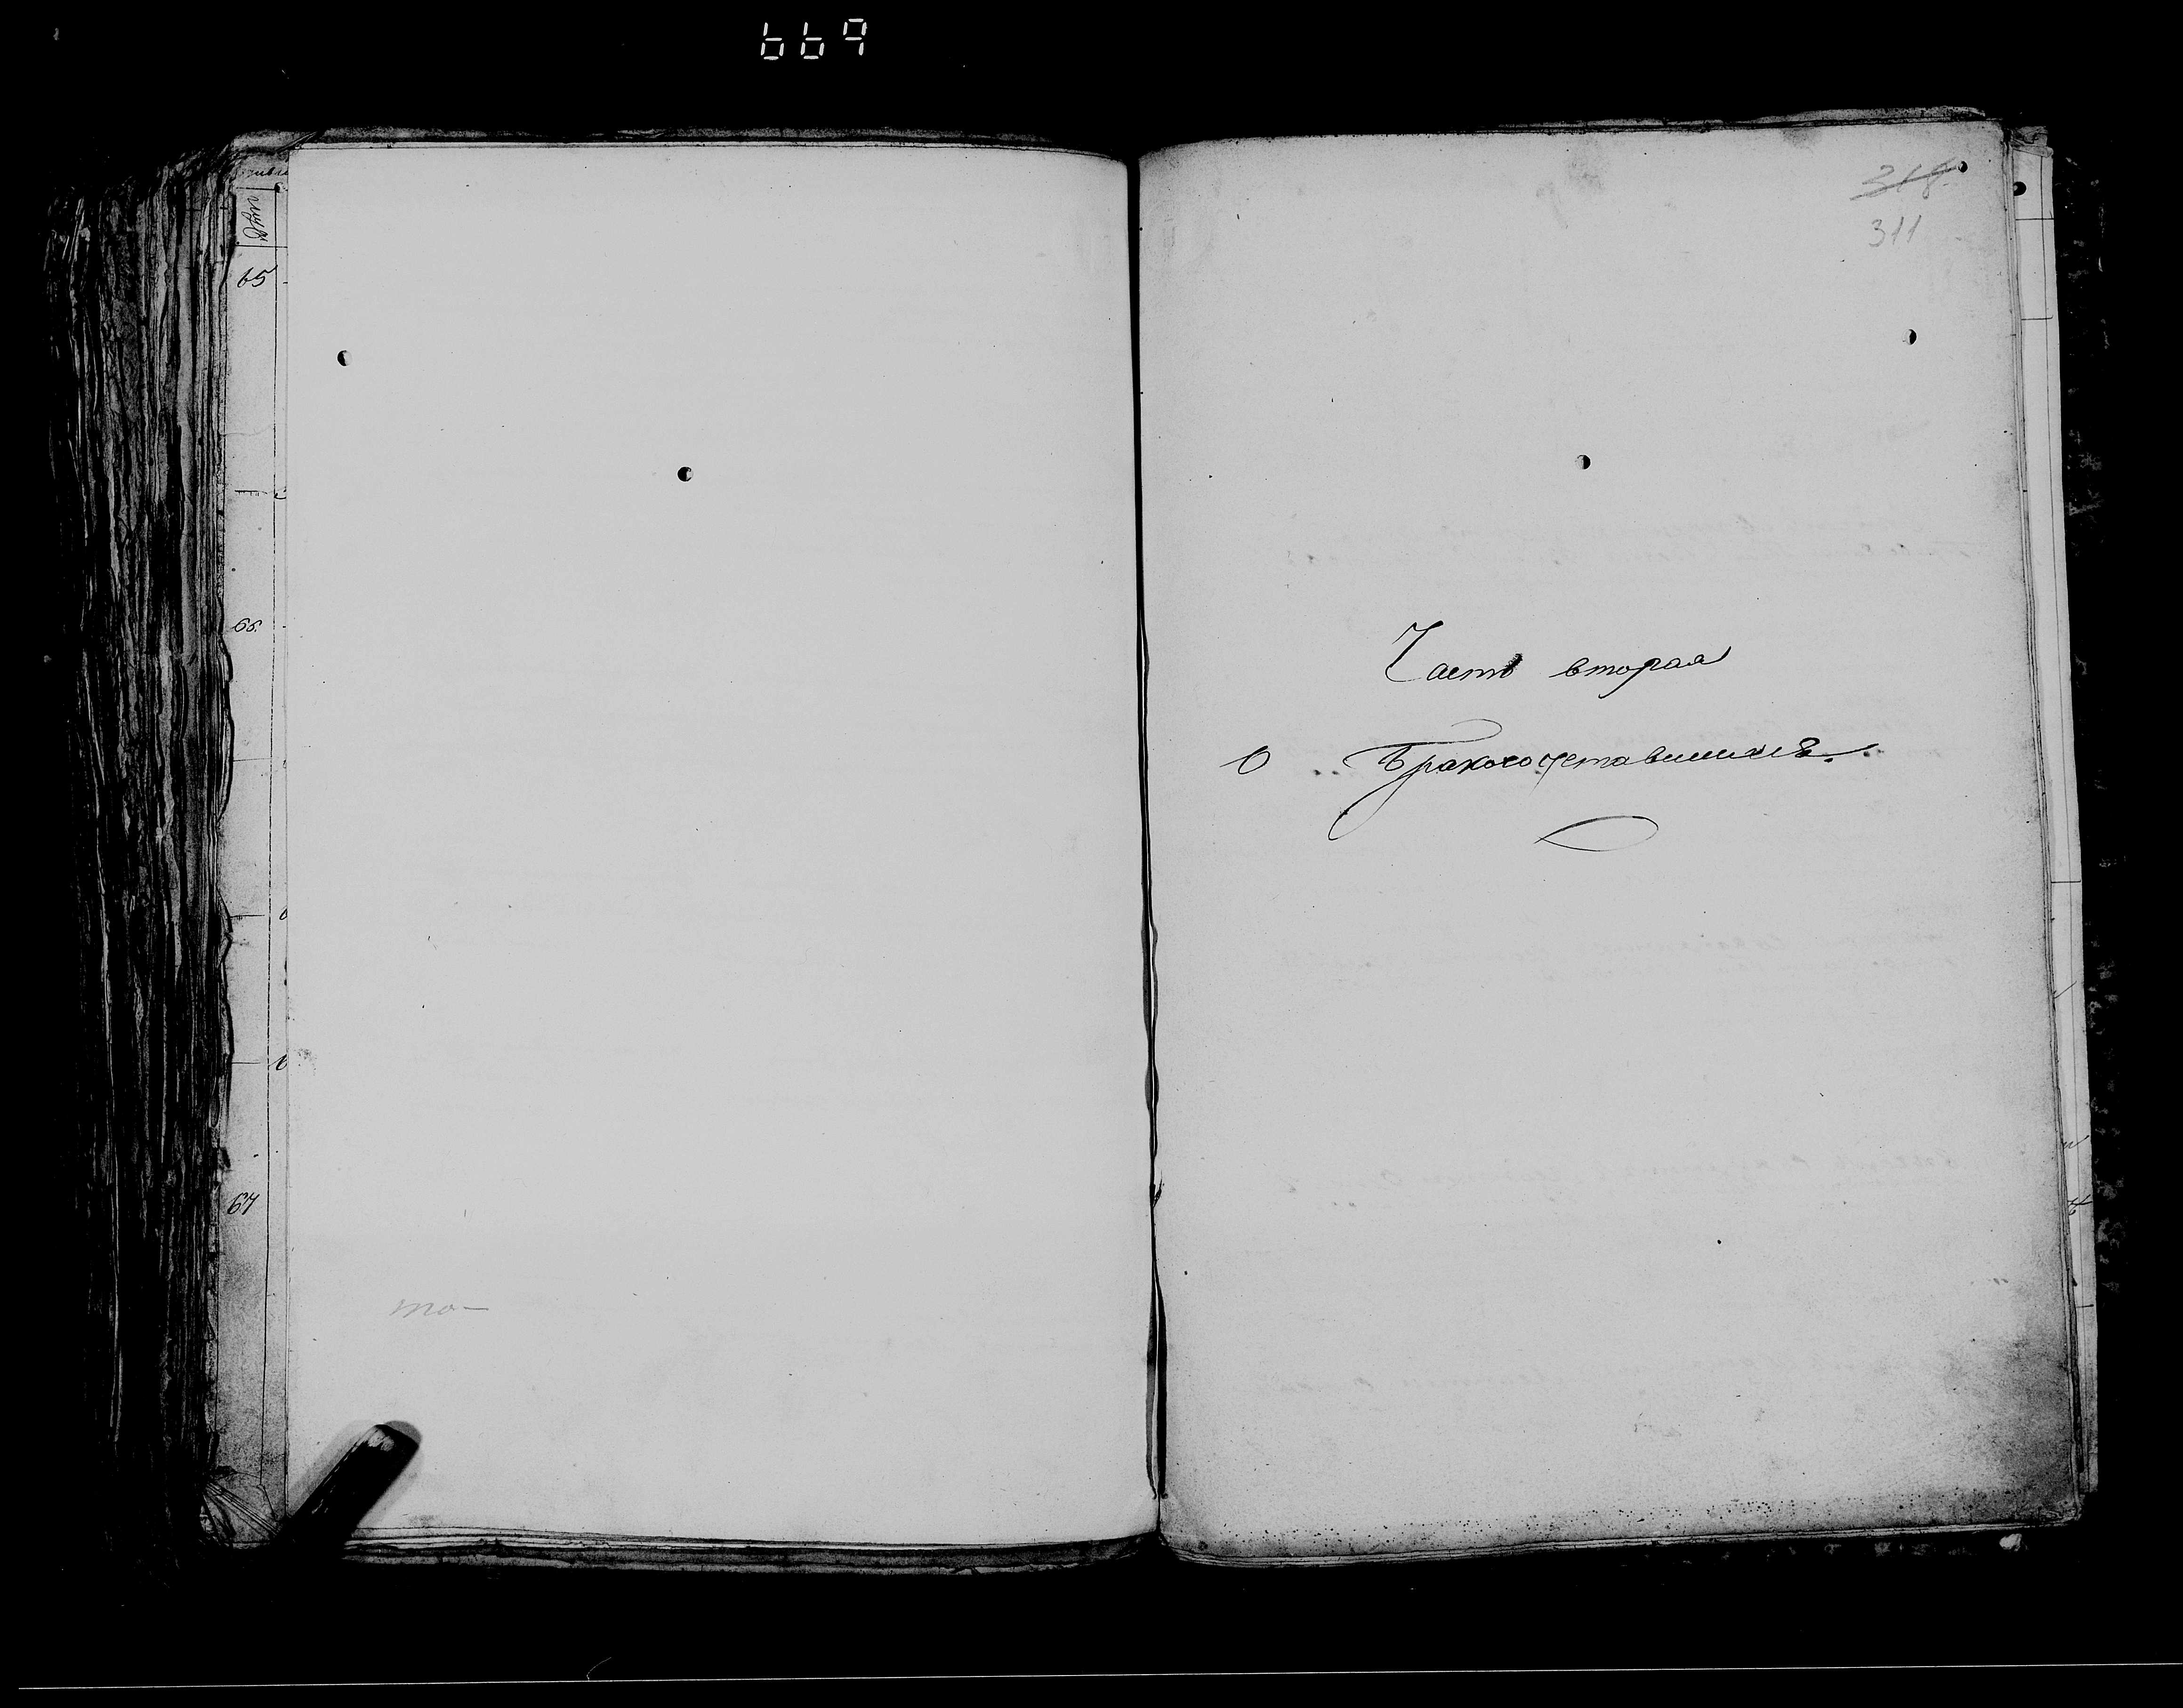 669
65
66.
67
то-
318.
311
Часть вторая
О Бракосочетавшихся.